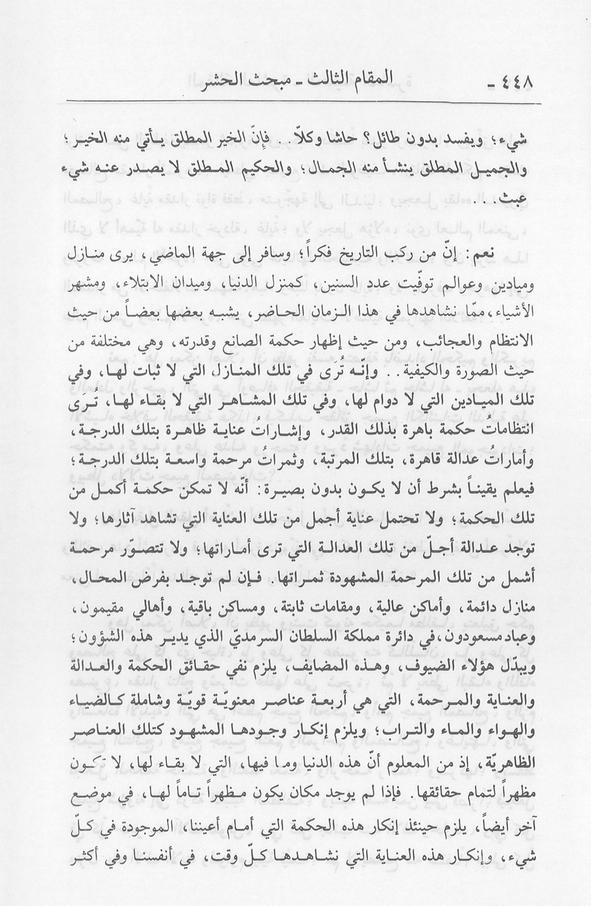 ٤٤٨ - المقام الثالث ـ مبحث الحشر
شيء؛ ويفسد بدون طائل؟ حاشا وكلّا.. فإنّ الخير المطلق يأتي منه الخير؛
والجميل المطلق ينشأ منه الجمال؛ والحكيم المطلق لا يصدر عنه شيء
عبث...
نعم: إنّ من ركب التاريخ فكراً؛ وسافر إلى جهة الماضي، يرى منازل
وميادين وعوالم توفّيت عدد السنين، كمنزل الدنيا، وميدان الابتلاء، ومشهر
الأشياء، ممّا نشاهدها في هذا الزمان الحاضر، يشبه بعضها بعضاً من حيث
الانتظام والعجائب، ومن حيث إظهار حكمة الصانع وقدرته، وهي مختلفة من
حيث الصورة والكيفية.. وإنّه تُرى في تلك المنازل التي لا ثبات لها، وفي
تلك الميادين التي لا دوام لها، وفي تلك المشاهر التي لا بقاء لها، تُرى
انتظاماتُ حكمة باهرة بذلك القدر، وإشاراتُ عناية ظاهرة بتلك الدرجة،
وأماراتُ عدالة قاهرة، بتلك المرتبة، وثمراتُ مرحمة واسعة بتلك الدرجة؛
فيعلم يقيناً بشرط أن لا يكون بدون بصيرة: أنّه لا تمكن حكمة أكمل من
تلك الحكمة؛ ولا تحتمل عناية أجمل من تلك العناية التي تشاهد آثارها؛ ولا
توجد عدالة أجلّ من تلك العدالة التي ترى أماراتها؛ ولا تتصوّر مرحمة
أشمل من تلك المرحمة المشهودة ثمراتها. فإن لم توجد بفرض المحال،
منازل دائمة، وأماكن عالية، ومقامات ثابتة، ومساكن باقية، وأهالي مقيمون،
وعباد مسعودون، في دائرة مملكة السلطان السرمديّ الذي يدير هذه الشؤون؛
ويبدّل هؤلاء الضيوف، وهذه المضايف، يلزم نفي حقائق الحكمة والعدالة
والعناية والمرحمة، التي هي أربعة عناصر معنويّة قويّة وشاملة كالضياء
والهواء والماء والتراب؛ ويلزم إنكار وجودها المشهود كتلك العناصر
الظاهريّة، إذ من المعلوم أنّ هذه الدنيا وما فيها، التي لا بقاء لها، لا تكون
مظهراً لتمام حقائقها. فإذا لم يوجد مكان يكون مظهراً تاماً لها، في موضع
آخر أيضاً، يلزم حينئذ إنكار هذه الحكمة التي أمام أعيننا، الموجودة في كلّ
شيء، وإنكار هذه العناية التي نشاهدها كلّ وقت، في أنفسنا وفي أكثر